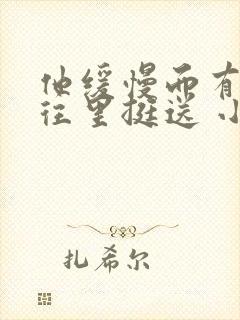 他缓慢而有
往里挺送 小
扎希尔